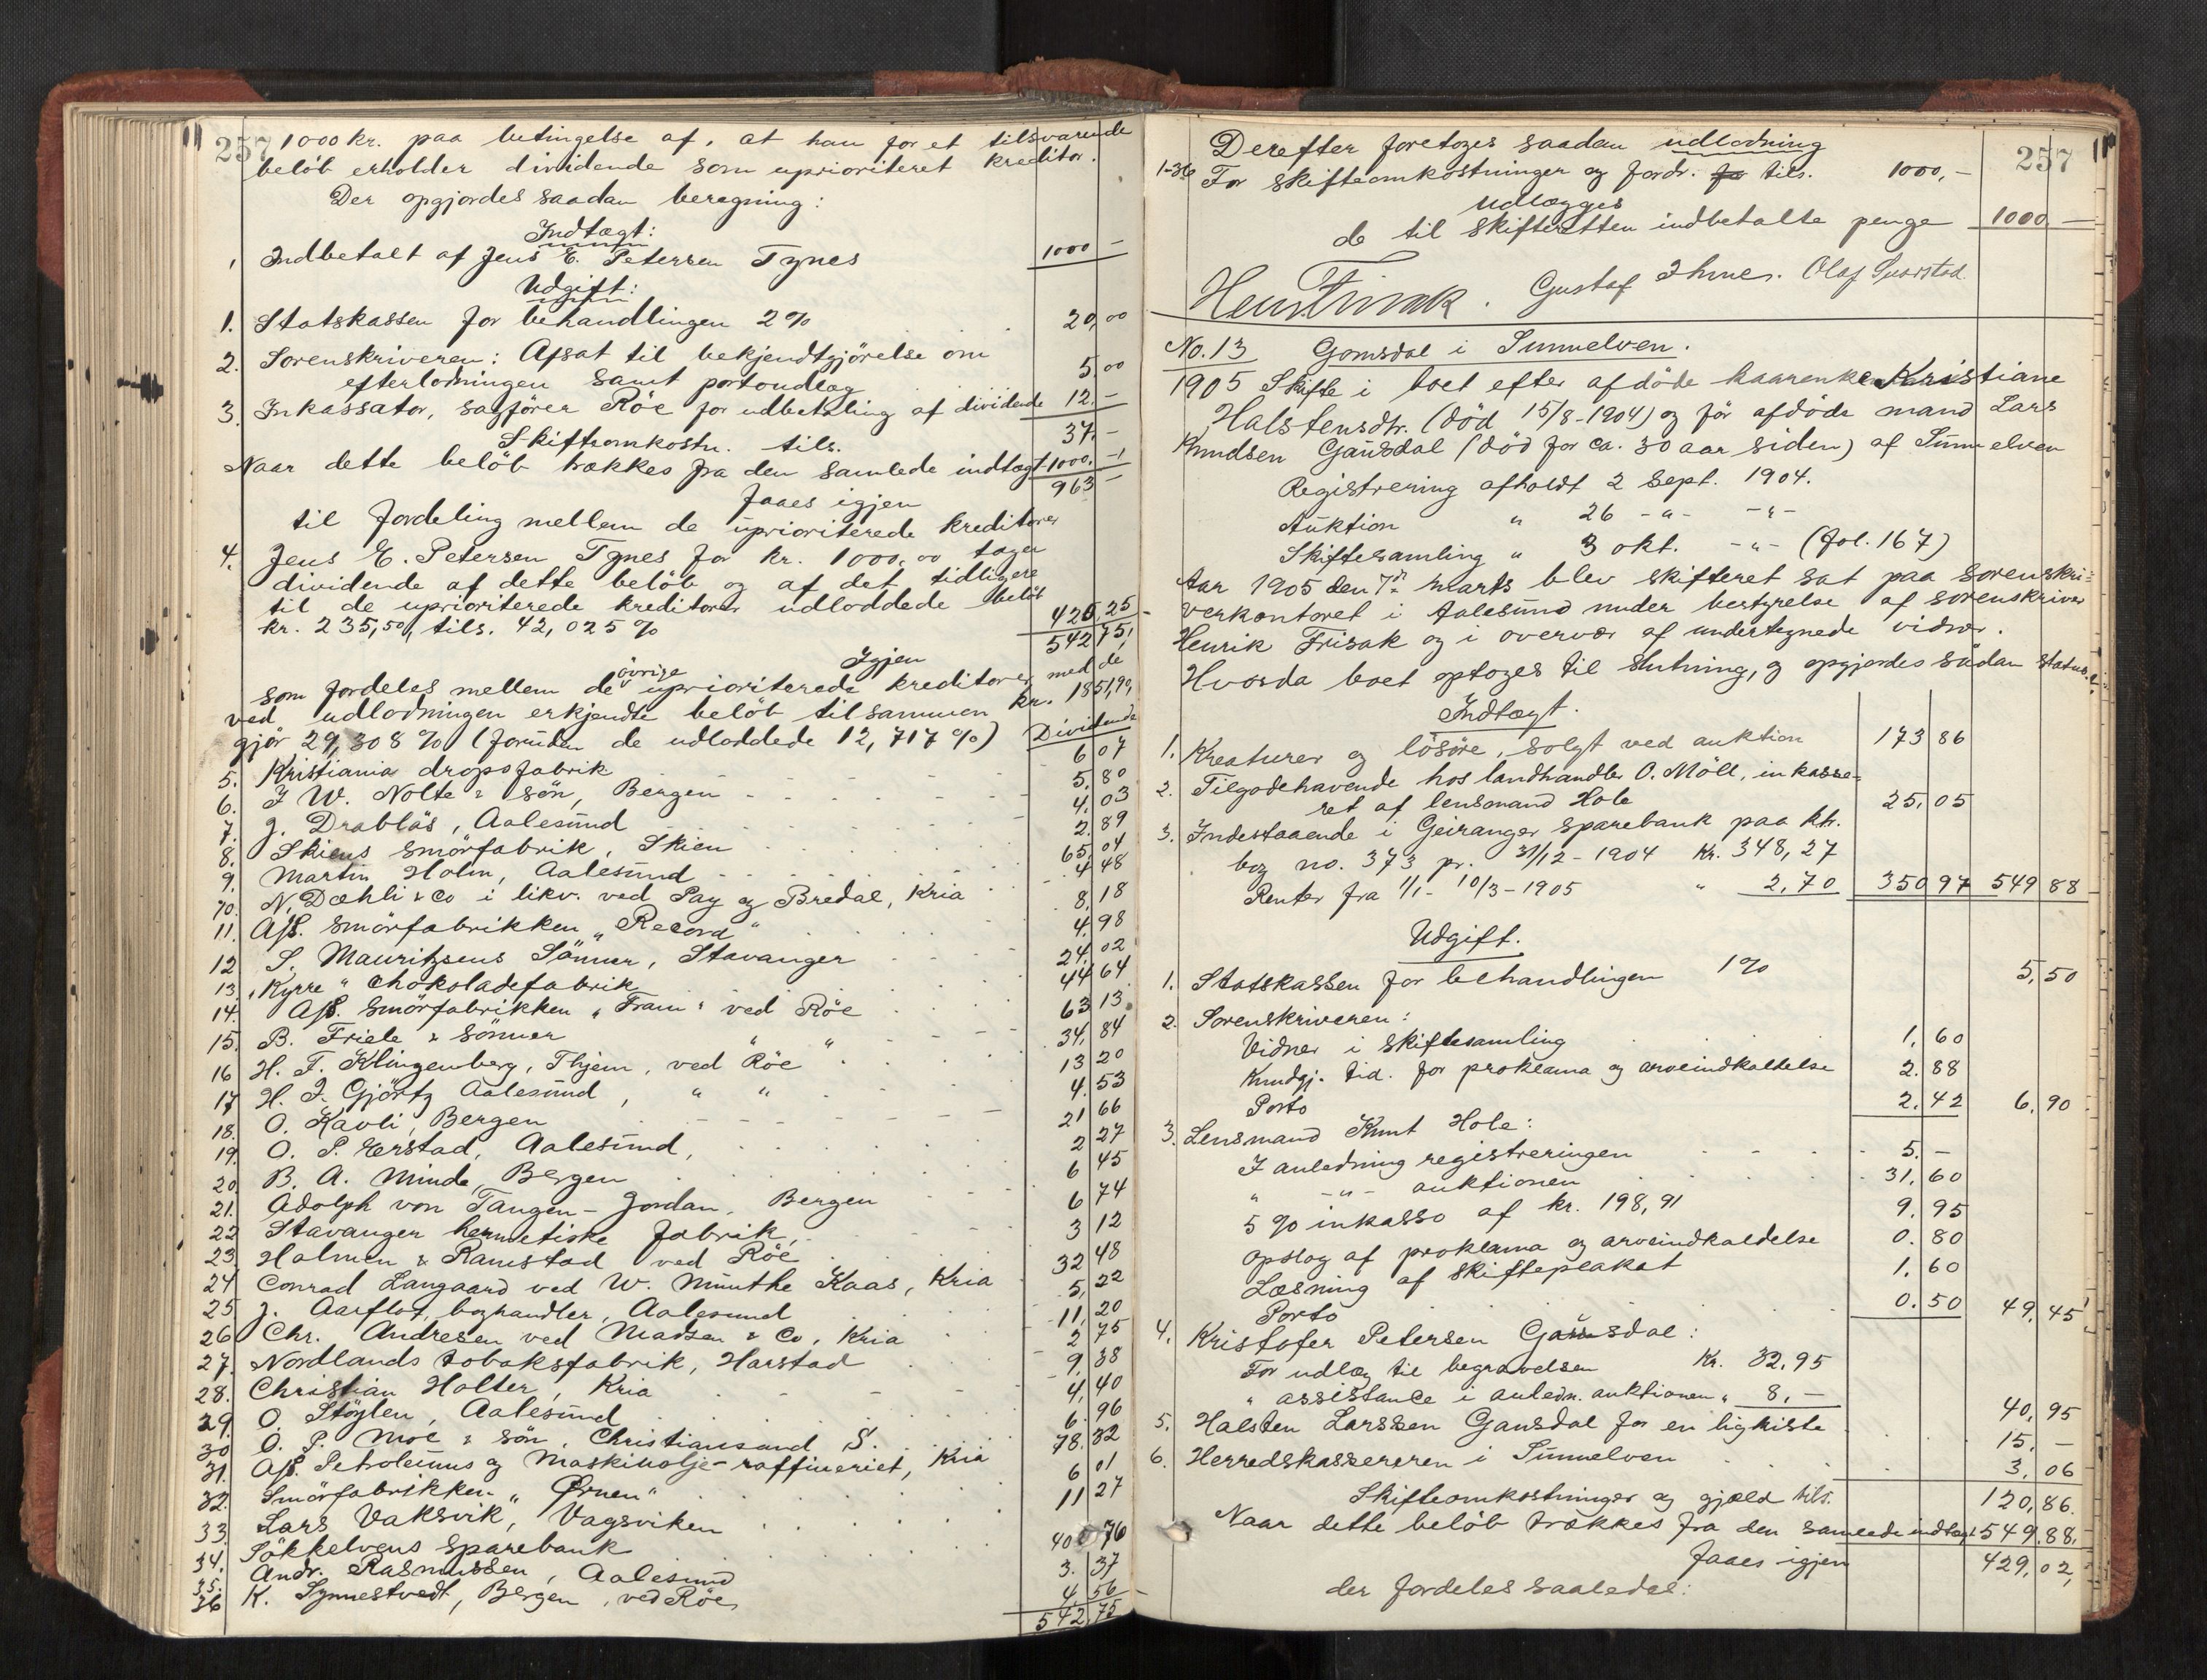 257
1000 kr. paa betingelse af, at han for et tilsvarende
beløb erholder dividende som uprioriteret kreditor.
Der opgjordes saadan beregning:
Indtægt:
1 Indbetalt af Jens E. Petersen Tynes 1000 –
Udgift:
1. Statskassen for behandlingen 2% 20,00
2. Sorenskriveren: Afsat til bekjendtgjörelse om
efterlodningen samt portoudlæg 5.00
3. Inkassator, sagförer Röe for udbetaling af dividende 12.–
Skifteomkostn. tils. 37.–
Naar dette belöb trækkes fra den samlede indtægt 1000.–
faaes igjen 963 –
til fordeling mellem de uprioriterede kreditorer
4. Jens E. Petersen Tynes for kr. 1000,00 tager
dividende af dette belöb og af det tidligere
til de uprioriterede kreditorer udloddede belöb
kr. 235,50, tils. 42,025% 420,25
Igjen 542 75,
som fordeles mellem de övrige uprioriterede kreditorer med de
ved udlodningen erkjendte belöb tilsammen kr. 1851,90,
gjör 29,308 % (foruden de udloddede 12,717 %) Dividende
5. Kristiania dropsfabrik 6 07
6. J W. Nolte & sön, Bergen 5.80
7. J. Drabläs, Aalesund 4.03
8. Skiens smörfabrik, Skien 2.89
9. Martin Holm, Aalesund 65,04
10. N. Dæhli & Co i likv. ved Pay og Bredal, Kria 4 48
11. A/S. smörfabrikken "Record" 8,18
12 S. Mauritzsens Sönner, Stavanger 4.98
13. "Kyrre" chokoladefabrik 24,02
14. A/S. smörfabrikken "Fram" ved Röe 44 64
15. B. Friele & sönner " " 63 13
16 H. F. Klingenberg, Thjem, ved Röe 34,84
17 H. I. Gjörtz Aalesund, " " 13 20
18. O. Kavli, Bergen 4.53
19. O. P. Herstad, Aalesund, 21 66
20. B. A. Minde, Bergen 2 27
21. Adolph von Tangen - Jordan, Bergen 6 45
22 Stavanger hermetiske fabrik, 6 74
23 Holmen & Ramstad ved Röe 3 12
24 Conrad Langaard ved W. Munthe Kaas, Kria 32 48
25 J. Aarflot, boghandler, Aalesund 5,22
26 Chr. Andresen ved Madsen & Co, Kria 11,20
27. Nordlands tobaksfabrik, Harstad 2 75
28. Christian Holter, Kria 9,38
29. O. Stöylen, Aalesund 4,40
30 O. P. Moe & sön, Christiansand S. 6.96
31. A/S. Petroleums og Maskinolje-raffineriet, Kria 78.32
32. Smörfabrikken "Ørnen" 6 01
33. Lars Vaksvik, Vagsviken 11 27
34. Sökkelvens sparebank 40 76
35. Andr. Rasmussen, Aalesund 3.37
36 K. Synnestvedt, Bergen, ved Röe, 4,56
542,75
257
Derefter foretoges saadan udlodning
1-36 For skifteomkostninger og fordr. tils. 1000,–
Udlægges
de til skifteretten indbetalte penge 1000 –
Henr. Frisak. Gustaf Ihme. Olaf
No. 13 Gomsdal i Sunnelven.
1905 Skifte i boet efter afdöde kaarenke Kristiane
Halstensdtr. (död 15/8-1904) og för afdöde mand Lars
Knudsen Gausdal (död for ca. 30 aar siden) af Sunnelven
Registrering afholdt 2 sept. 1904.
Auktion " 26 -"- -"-
Skiftesamling " 3 okt. -"- (fol. 167)
Aar 1905 den 7de marts blev skifteret sat paa sorenskri=
verkontoret i Aalesund under bestyrelse af sorenskriver
Henrik Frisak og i overvær af undertegnede vidner.
Hvorda boet optoges til slutning, og opgjordes sådan status:
Indtægt.
1. Kreaturer og lösöre, solgt ved auktion 173 86
2. Tilgodehavende hos landhandler O. Möll, inkasse=
ret af lensmand Hole 25,05
3. Indestaaende i Geiranger sparebank paa ktr.
bog no. 373 pr. 31/12-1904 kr. 348,27
Renter fra 1/1-10/3-1905 " 2,70 350 97 549 88
Udgift.
1. Statskassen for behandlingen 1% 5,50
2. Sorenskriveren:
Vidner i skiftesamling 1,60
Kundgj. tid. for proklama og arveindkaldelse 2.88
Porto 2.42 6,90
3. Lensmand Knut Hole:
I anledning registreringen 5.–
" -"- auktionen 31,60
5 % inkasso af kr. 198,91 9.95
Opslag af proklama og arveindkaldelse 0.80
Læsning af skifteplakat 1.60
Porto 0.50 49,45
4. Kristofer Petersen Gausdal:
For udlæg til begravelsen Kr. 32,95
" assistance i anledn. auktionen " 8,– 40,95
5. Halsten Larssen Gausdal for en ligkiste 15.–
6. Herredskassereren i Sunnelven 3,06
Skifteomkostninger og gjæld tils. 120,86.
Naar dette belöb trækkes fra den samlede indtægt 549,88,
faaes igjen 429,02,
der fordeles saaledes: